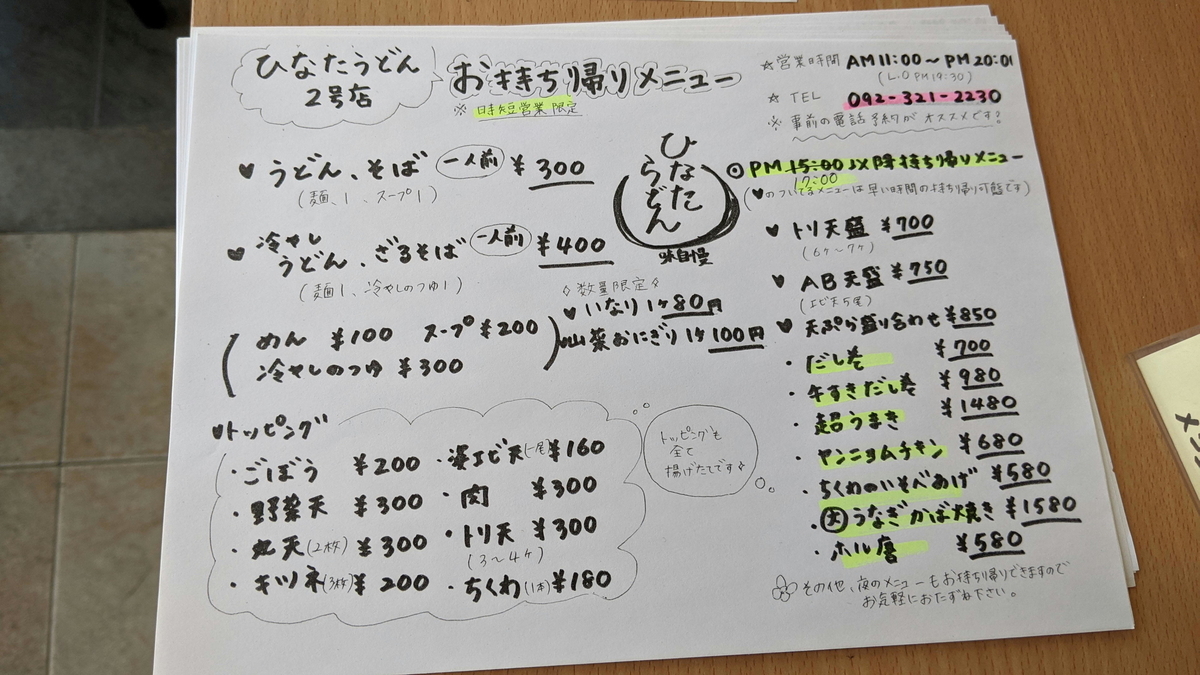 ひなたうどん
2号店
お持ち帰りメニュー
※ 時短営業限定
☆営業時間 AM11:00～PM20:00
(L.O PM19:30)
☆ TEL 092-321-2230
※ 事前の電話予約がオススメです!
♥ うどん、そば 一人前 ¥300
(麺1、スープ1)
♥ 冷やし
うどん、ざるそば 一人前 ¥400
(麺1、冷やしのつゆ1)
(めん ¥100 スープ ¥200
冷やしのつゆ ¥300)
ひなた
うどん
味自慢
◇数量限定◇
♥いなり 1ヶ80円
♥山菜おにぎり 1ヶ100円
♥トッピング
・ごぼう ¥200
・野菜天 ¥300
・丸天(2枚) ¥300
・キツネ(3枚) ¥200
・海エビ天(一尾) ¥160
・肉 ¥300
・トリ天 ¥300
(3～4ヶ)
・ちくわ(1本) ¥180
トッピングも
全て
揚げたてです◇
◎PM 15:00以降持ち帰りメニュー
17:00
(♥のついてるメニューは早い時間の持ち帰り可能です)
♥ トリ天盛 ¥700
(6ヶ～7ヶ)
♥ AB天盛 ¥750
(エビ天5尾)
♥ 天ぷら盛り合わせ ¥850
・だし巻 ¥700
・牛すきだし巻 ¥980
・超うまき ¥1480
・ヤンニョムチキン ¥680
・ちくわのいそべあげ ¥580
・大うなぎかば焼き ¥1580
・ホル唐 ¥580
その他、夜のメニューもお持ち帰りできますので
お気軽におたずね下さい。